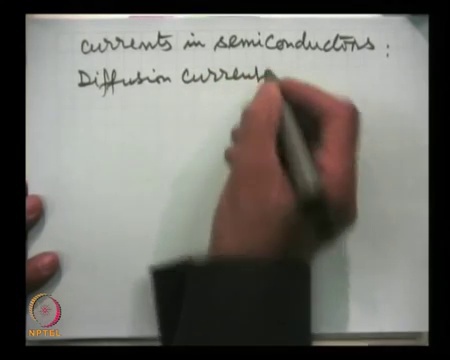 currents in semiconductors :
Diffusion current
NPTEL